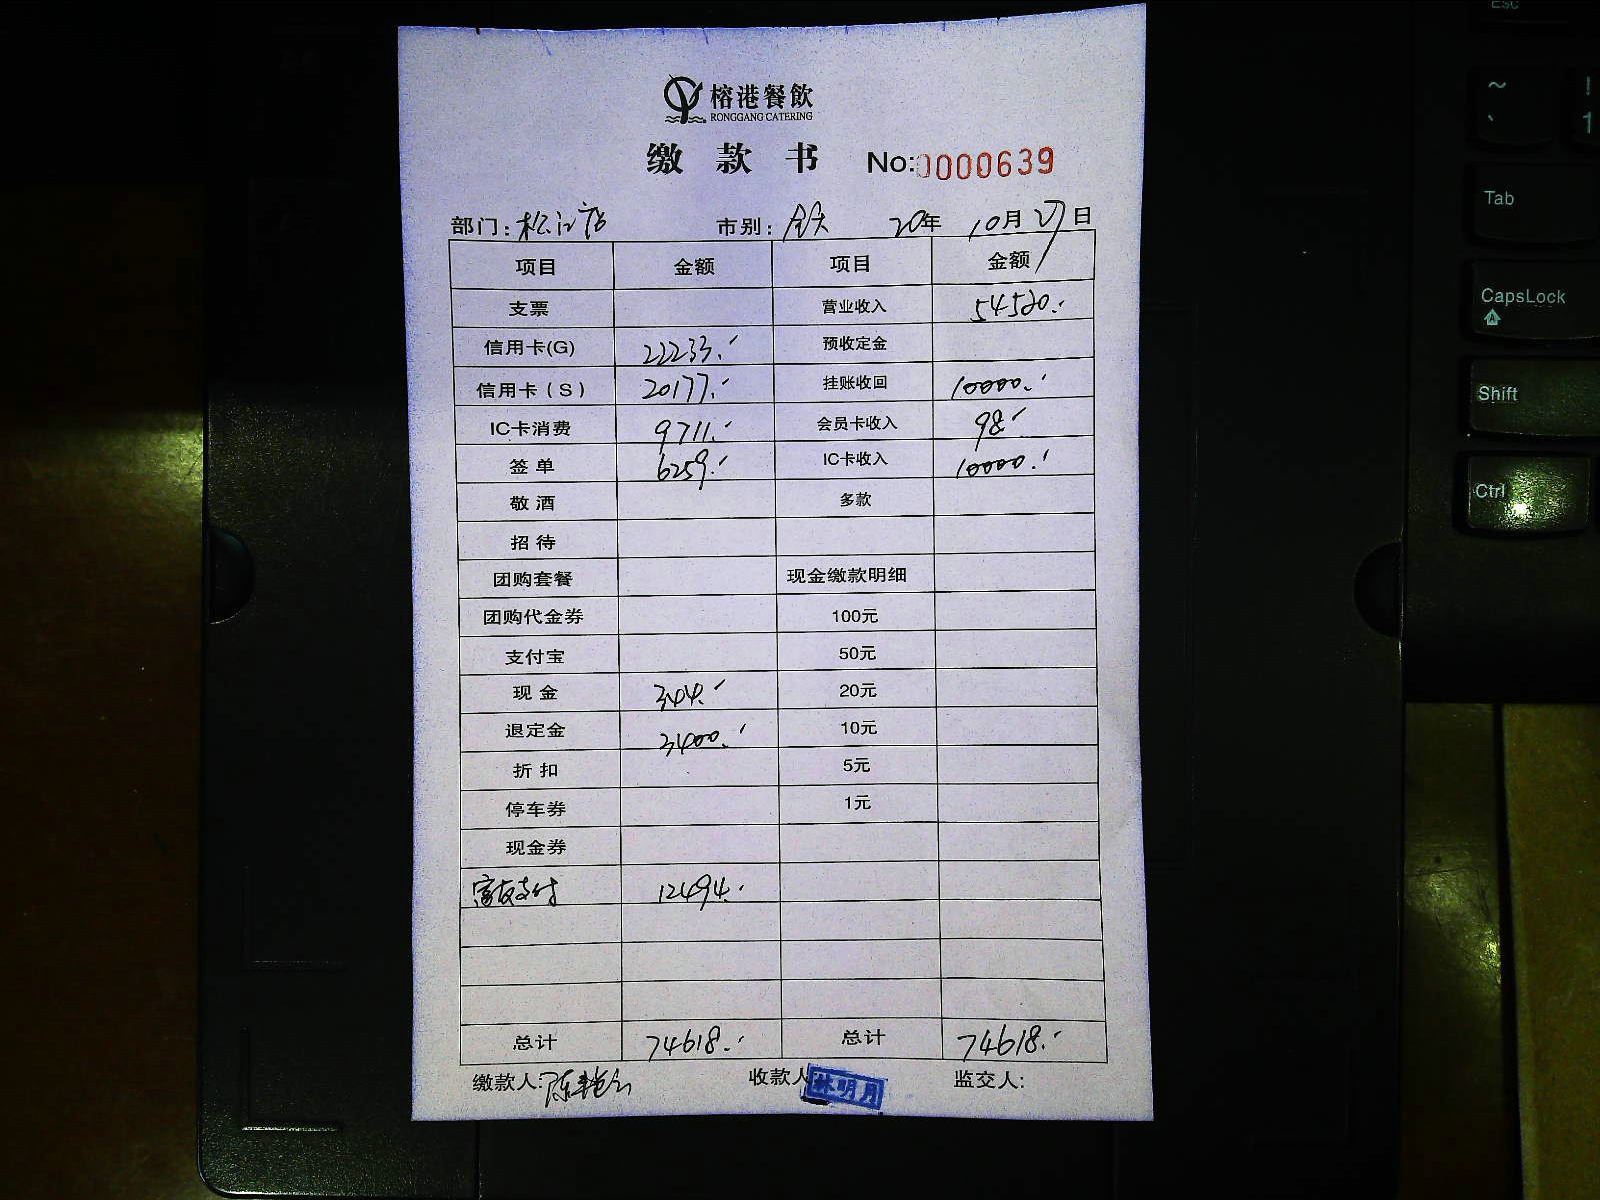 榕港餐飲
RONGGANG CATERING
缴 款 书 No:0000639
部门: 松江店 市别: 全天 20年 10月27日
项目 金额 项目 金额
支票 营业收入 54520.-
信用卡(G) 22233.- 预收定金
信用卡(S) 20177.- 挂账收回 10000.-
IC卡消费 9711.- 会员卡收入 98.-
签单 6259.- IC卡收入 10000.-
敬酒 多款
招待
团购套餐 现金缴款明细
团购代金券 100元
支付宝 50元
现金 344.- 20元
退定金 3400.- 10元
折扣 5元
停车券 1元
现金券
富友支付 12494.-
总计 74618.- 总计 74618.-
缴款人: 收款人 林明月 监交人:
Esc
~ !
` 1
Tab
CapsLock
Shift
Ctrl